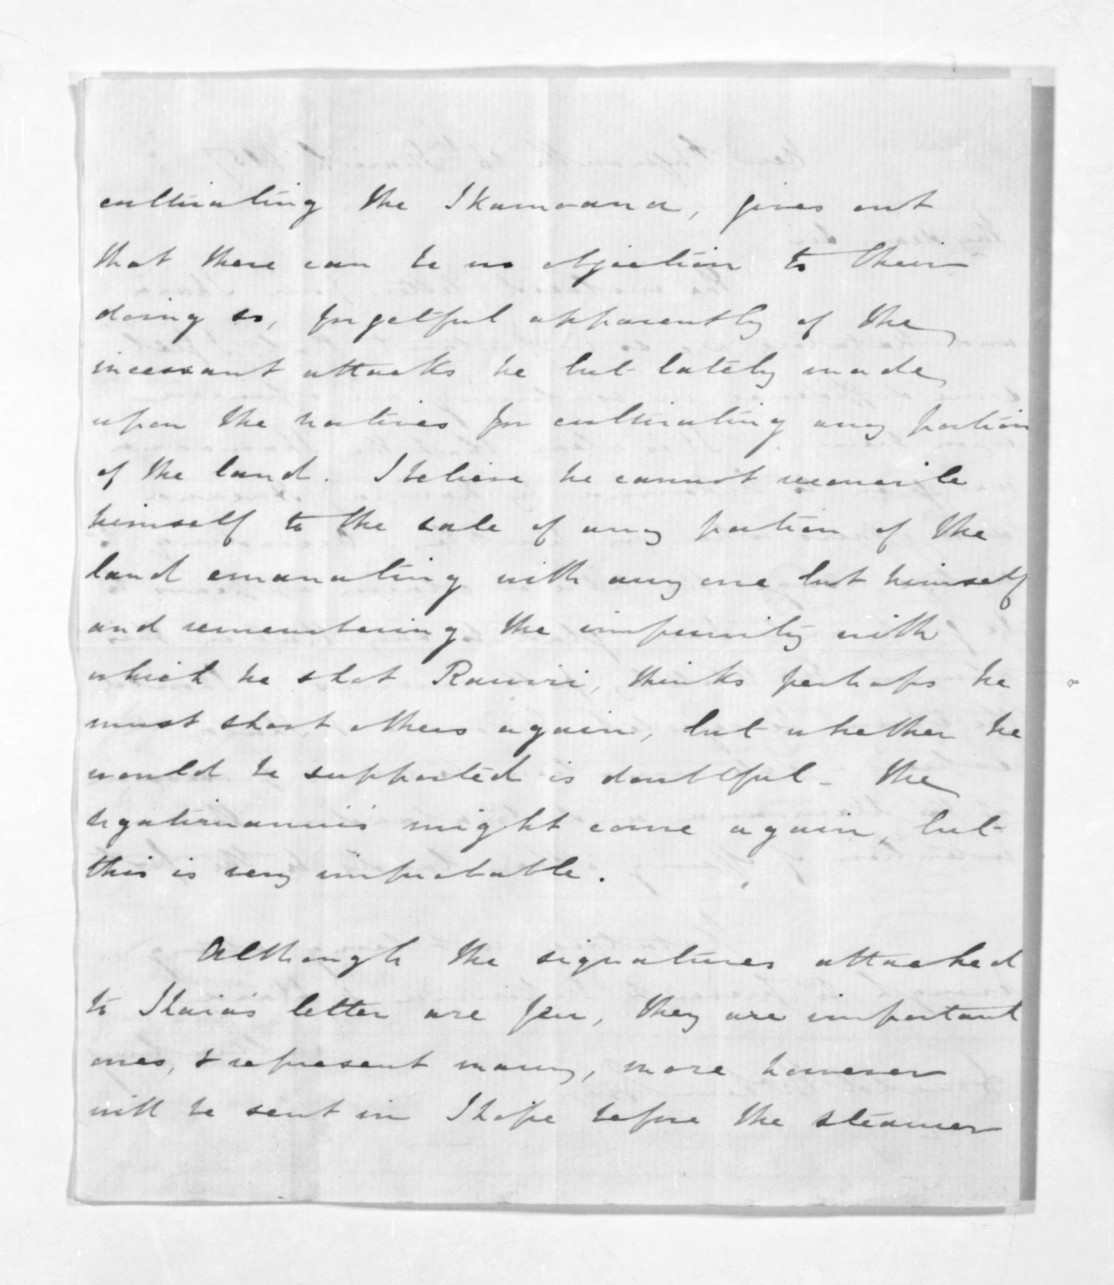 cultivating the Ikamoana, gives out
that there can be no objection to their
doing so, forgetful apparently of the
incessant attacks he but lately made
upon the natives for cultivating any portion
of the land. I believe he cannot reconcile
himself to the sale of any portion of the
land emanating with any one but himself
and remembering the impunity with
which he shot Rawiri, thinks perhaps he
must shoot others again, but whether he
would be supported is doubtful - the
ngatiruanuis might come again, but
this is very improbable.
Although the signatures attached
to Ihaia's letter are few, they are important
ones, & represent many, more however
will be sent in I hope before the steamer